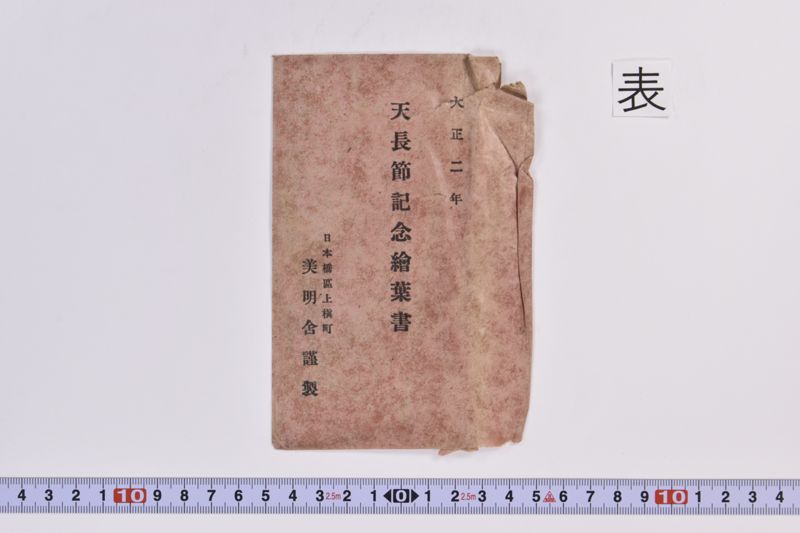 表
大正二年
天長節記念繪葉書
日本橋區上槇町
美明舎謹製
4 3 2 1 10 9 8 7 6 5 4 3 2.5m 2 1 0 1 2 2.5m 3 4 5 6 7 8 9 10 1 2 3 4